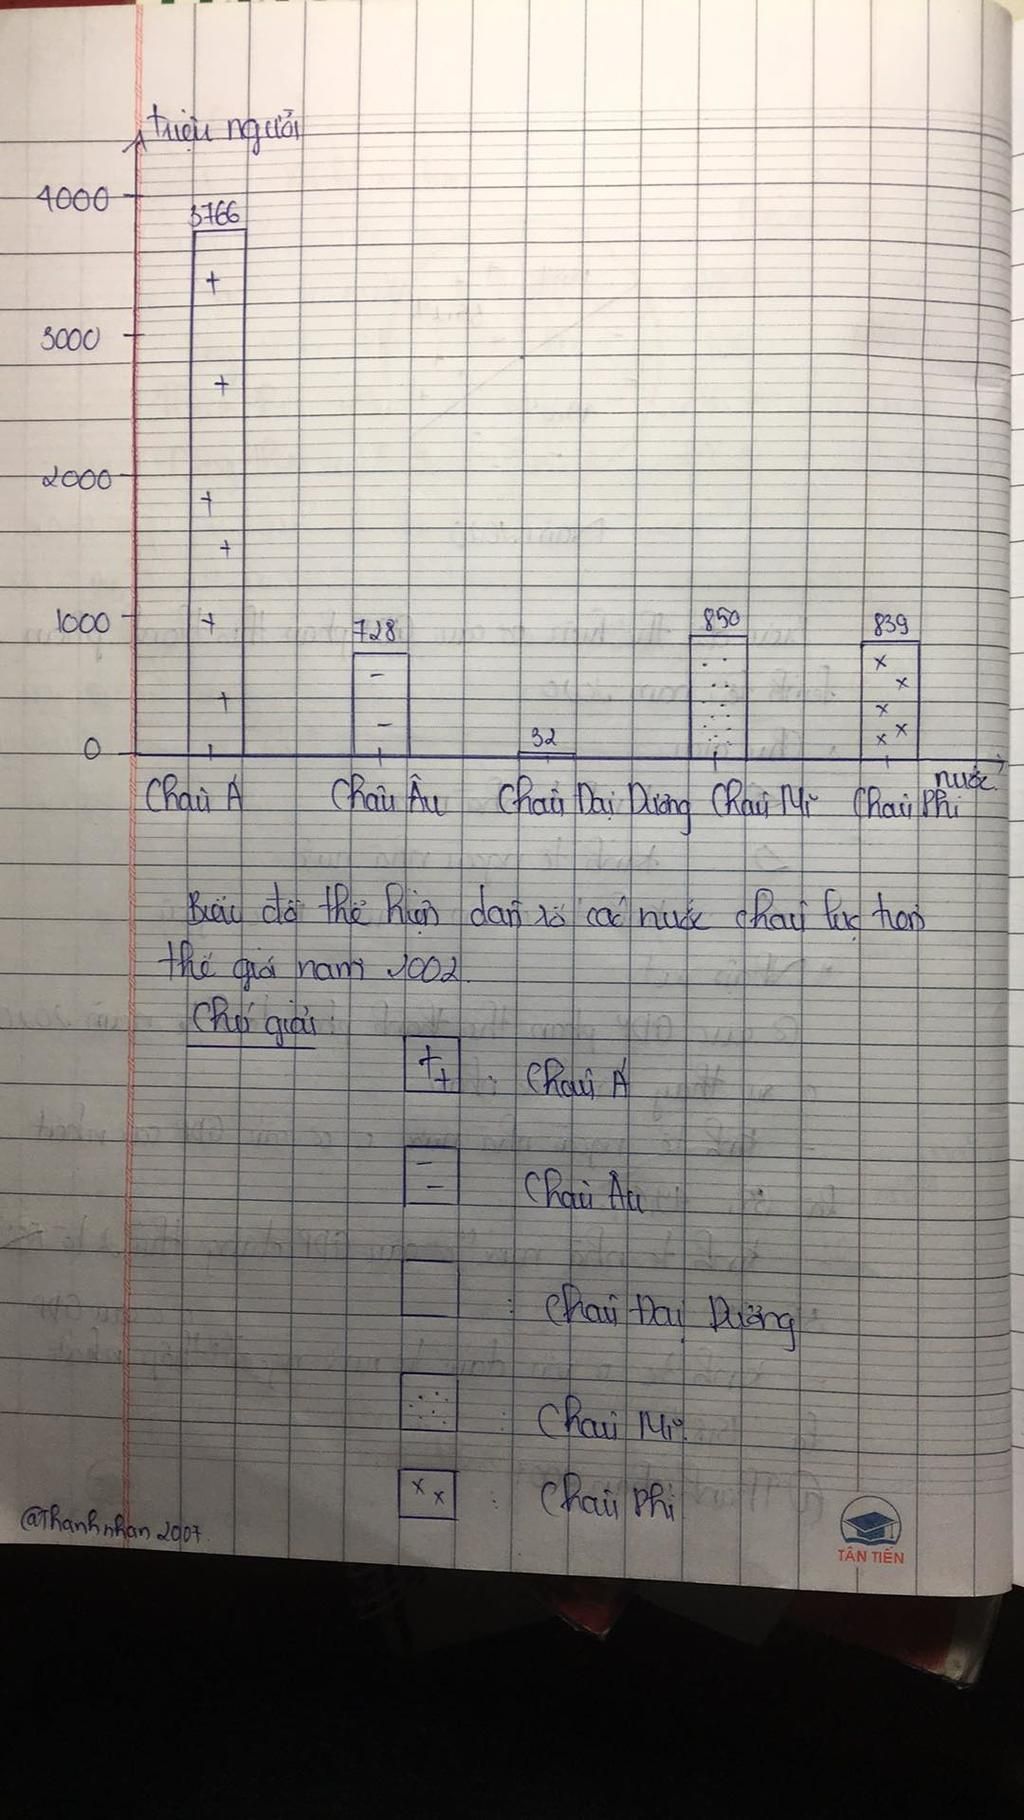 triệu người
4000
3766
3000
2000
1000
728
850
839
0
32
nước
Châu Á Châu Âu Châu Đại Dương Châu Mĩ Châu Phi
Biểu đồ thể hiện dân số các nước châu lục trên
thế giới năm 2002.
Chú giải:
: Châu Á
Châu Âu
: Châu Đại Dương
: Châu Mĩ
: Châu Phi
@Thanhnhan2007.
TÂN TIẾN